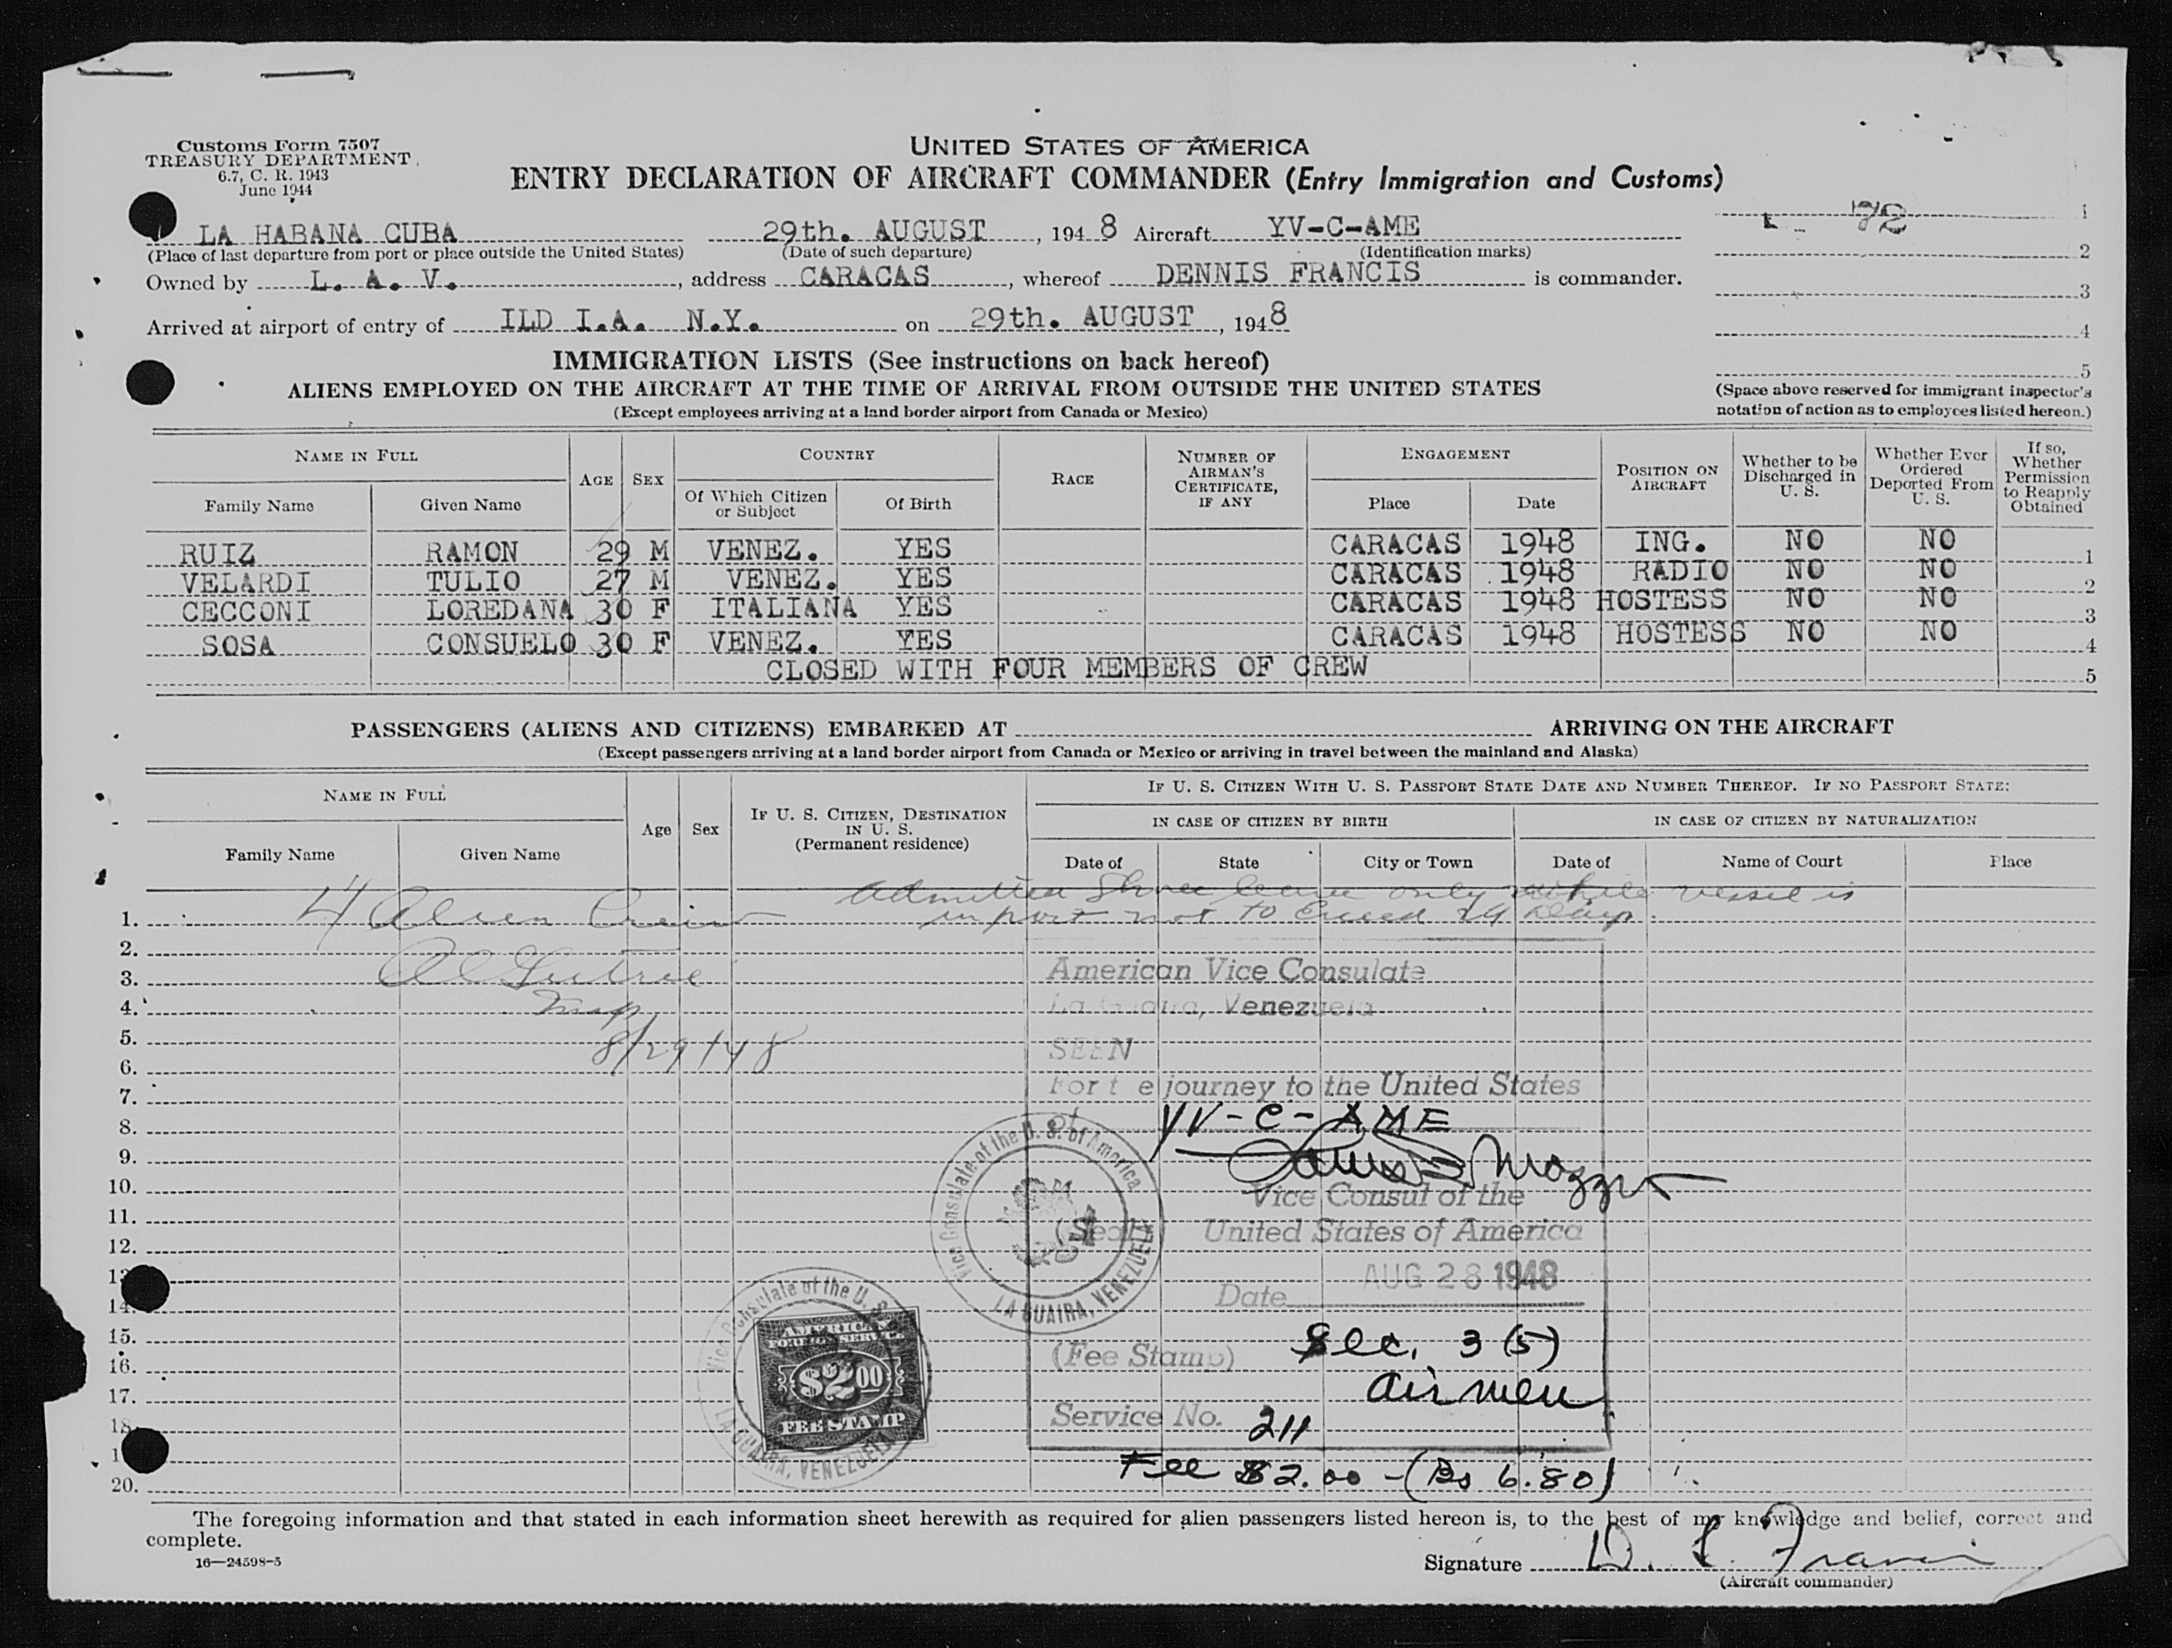 Customs Form 7507
TREASURY DEPARTMENT
6.7, C. R. 1943
June 1944
UNITED STATES OF AMERICA
ENTRY DECLARATION OF AIRCRAFT COMMANDER (Entry Immigration and Customs)
LA HABANA CUBA 29th. AUGUST, 1948 Aircraft YV-C-AME
(Place of last departure from port or place outside the United States) (Date of such departure) (Identification marks)
Owned by L. A. V., address CARACAS, whereof DENNIS FRANCIS is commander.
Arrived at airport of entry of ILD I.A. N.Y. on 29th. AUGUST, 1948
1
2
3
4
5
(Space above reserved for immigrant inspector's notation of action as to employees listed hereon.)
IMMIGRATION LISTS (See instructions on back hereof)
ALIENS EMPLOYED ON THE AIRCRAFT AT THE TIME OF ARRIVAL FROM OUTSIDE THE UNITED STATES
(Except employees arriving at a land border airport from Canada or Mexico)
NAME IN FULL AGE SEX COUNTRY RACE NUMBER OF AIRMAN'S CERTIFICATE, IF ANY ENGAGEMENT POSITION ON AIRCRAFT Whether to be Discharged in U. S. Whether Ever Ordered Deported From U. S. If so, Whether Permission to Reapply Obtained
Family Name Given Name Of Which Citizen or Subject Of Birth Place Date
RUIZ RAMON 29 M VENEZ. YES CARACAS 1948 ING. NO NO 1
VELARDI TULIO 27 M VENEZ. YES CARACAS 1948 RADIO NO NO 2
CECCONI LOREDANA 30 F ITALIANA YES CARACAS 1948 HOSTESS NO NO 3
SOSA CONSUELO 30 F VENEZ. YES CARACAS 1948 HOSTESS NO NO 4
CLOSED WITH FOUR MEMBERS OF CREW 5
PASSENGERS (ALIENS AND CITIZENS) EMBARKED AT ARRIVING ON THE AIRCRAFT
(Except passengers arriving at a land border airport from Canada or Mexico or arriving in travel between the mainland and Alaska)
NAME IN FULL Age Sex IF U. S. CITIZEN, DESTINATION IN U. S. (Permanent residence) IF U. S. CITIZEN WITH U. S. PASSPORT STATE DATE AND NUMBER THEREOF. IF NO PASSPORT STATE:
IN CASE OF CITIZEN BY BIRTH IN CASE OF CITIZEN BY NATURALIZATION
Family Name Given Name Date of State City or Town Date of Name of Court Place
Admitted Shore leave only while vessel is
1. 4 Alien Crew in port not to Exceed 29 Days.
2.
3.
4. Insp
5. 8/29/48
6.
7.
8.
9.
10.
11.
12.
13
14.
15.
16.
17.
18.
1
20.
American Vice Consulate
La Guaira, Venezuela
SEEN
For the journey to the United States
of YV-C-AME
Vice Consul of the
(Seal) United States of America
Date AUG 28 1948
(Fee Stamp) Sec. 3 (5)
airmen
Service No. 211
Fee $2.00 - (Bs 6.80)
Vice Consulate of the U. S. of America
LA GUAIRA, VENEZUELA
Vice Consulate of the U. S.
LA GUAIRA, VENEZUELA
AMERICAN
FOREIGN SERVICE
$2.00
FEE STAMP
The foregoing information and that stated in each information sheet herewith as required for alien passengers listed hereon is, to the best of my knowledge and belief, correct and
complete.
16—24598-5
Signature D. L. Francis
(Aircraft commander)